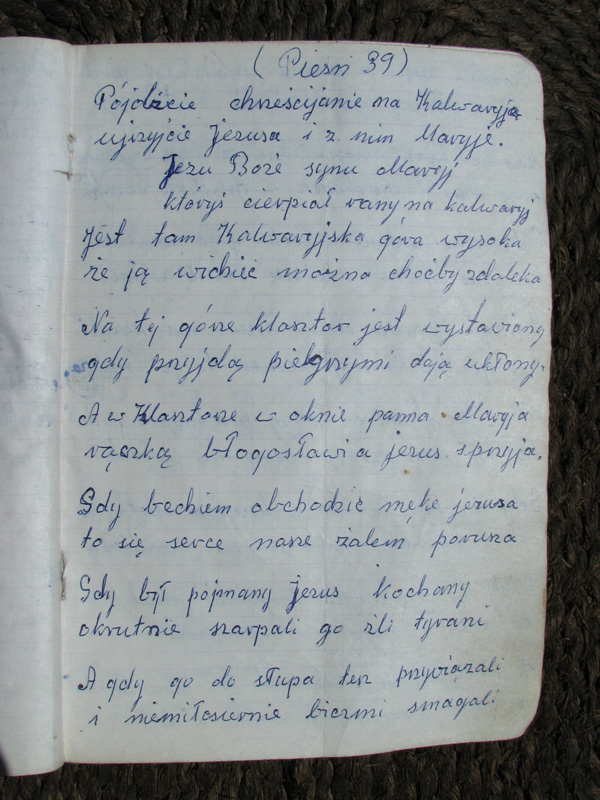 (Piesń 39)
Pójdźcie chrześcijanie na Kalwaryją
ujrzyjcie jezusa i z nim Maryję.
Jezu Boże synu Maryj
któryś cierpiał rany na kalwaryj
Jest tam Kalwaryjska góra wysoka
że ją widzieć można choćby zdaleka
Na tej górze klasztor jest wystawiony
gdy przyjdą pielgrzymi dają ukłony.
A w Klasztorze w oknie panna Maryja
rączką błogosławi a jezus spszyja.
Gdy bedziem obchodzić męke jezusa
to się serce nasze żalem porusza
Gdy był pojmany jezus kochany
okrutnie szarpali go źli tyrani
A gdy go do słupa tesz przywiązali
i niemiłosiernie biczmi smagali